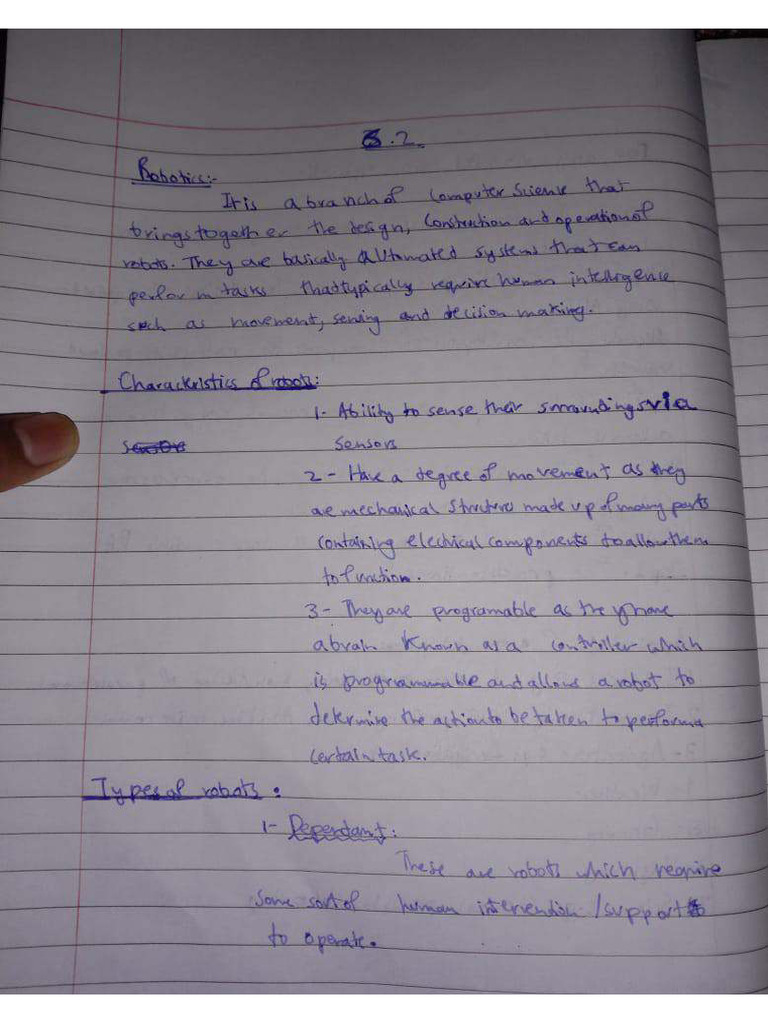 6.2
Robotics:-
It is a branch of Computer Science that
brings together the design, Construction and operation of
robots. They are basically automated systems that can
perform tasks that typically require human intelligence
such as movement, sensing and decision making.
Characteristics of robots:
1- Ability to sense their surroundings via
sensors
2- Have a degree of movement as they
are mechanical structures made up of many parts
containing electrical components to allow them
to function.
3- They are programable as they have
a brain known as a controller which
is programmable and allows a robot to
determine the action to be taken to perform a
certain task.
Types of robots:
1- Dependant:
These are robots which require
some sort of human intervention / support
to operate.